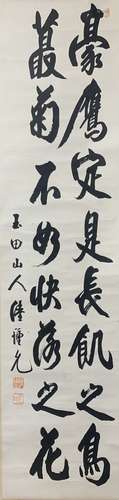 豪鷹定是長飢之鳥
菊不如快落之花
玉田山人陸